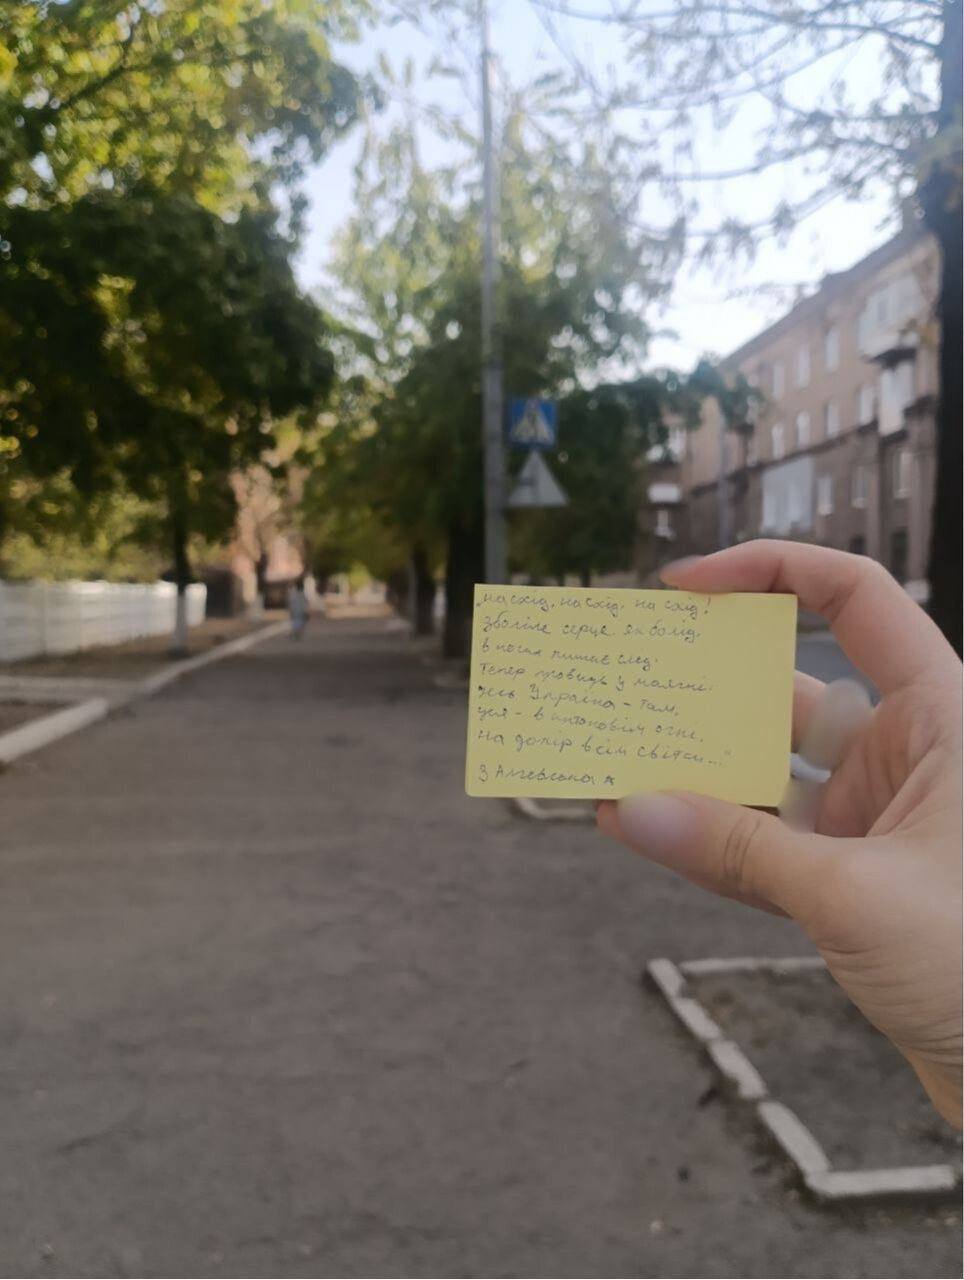 „на схід, на схід, на схід!
зболіле серце, як болід,
в ночах лишає слід.
Тепер провидь у маячні:
десь Україна – там,
уся – в антоновім огні,
на докір всім світам..."
З Алчевська